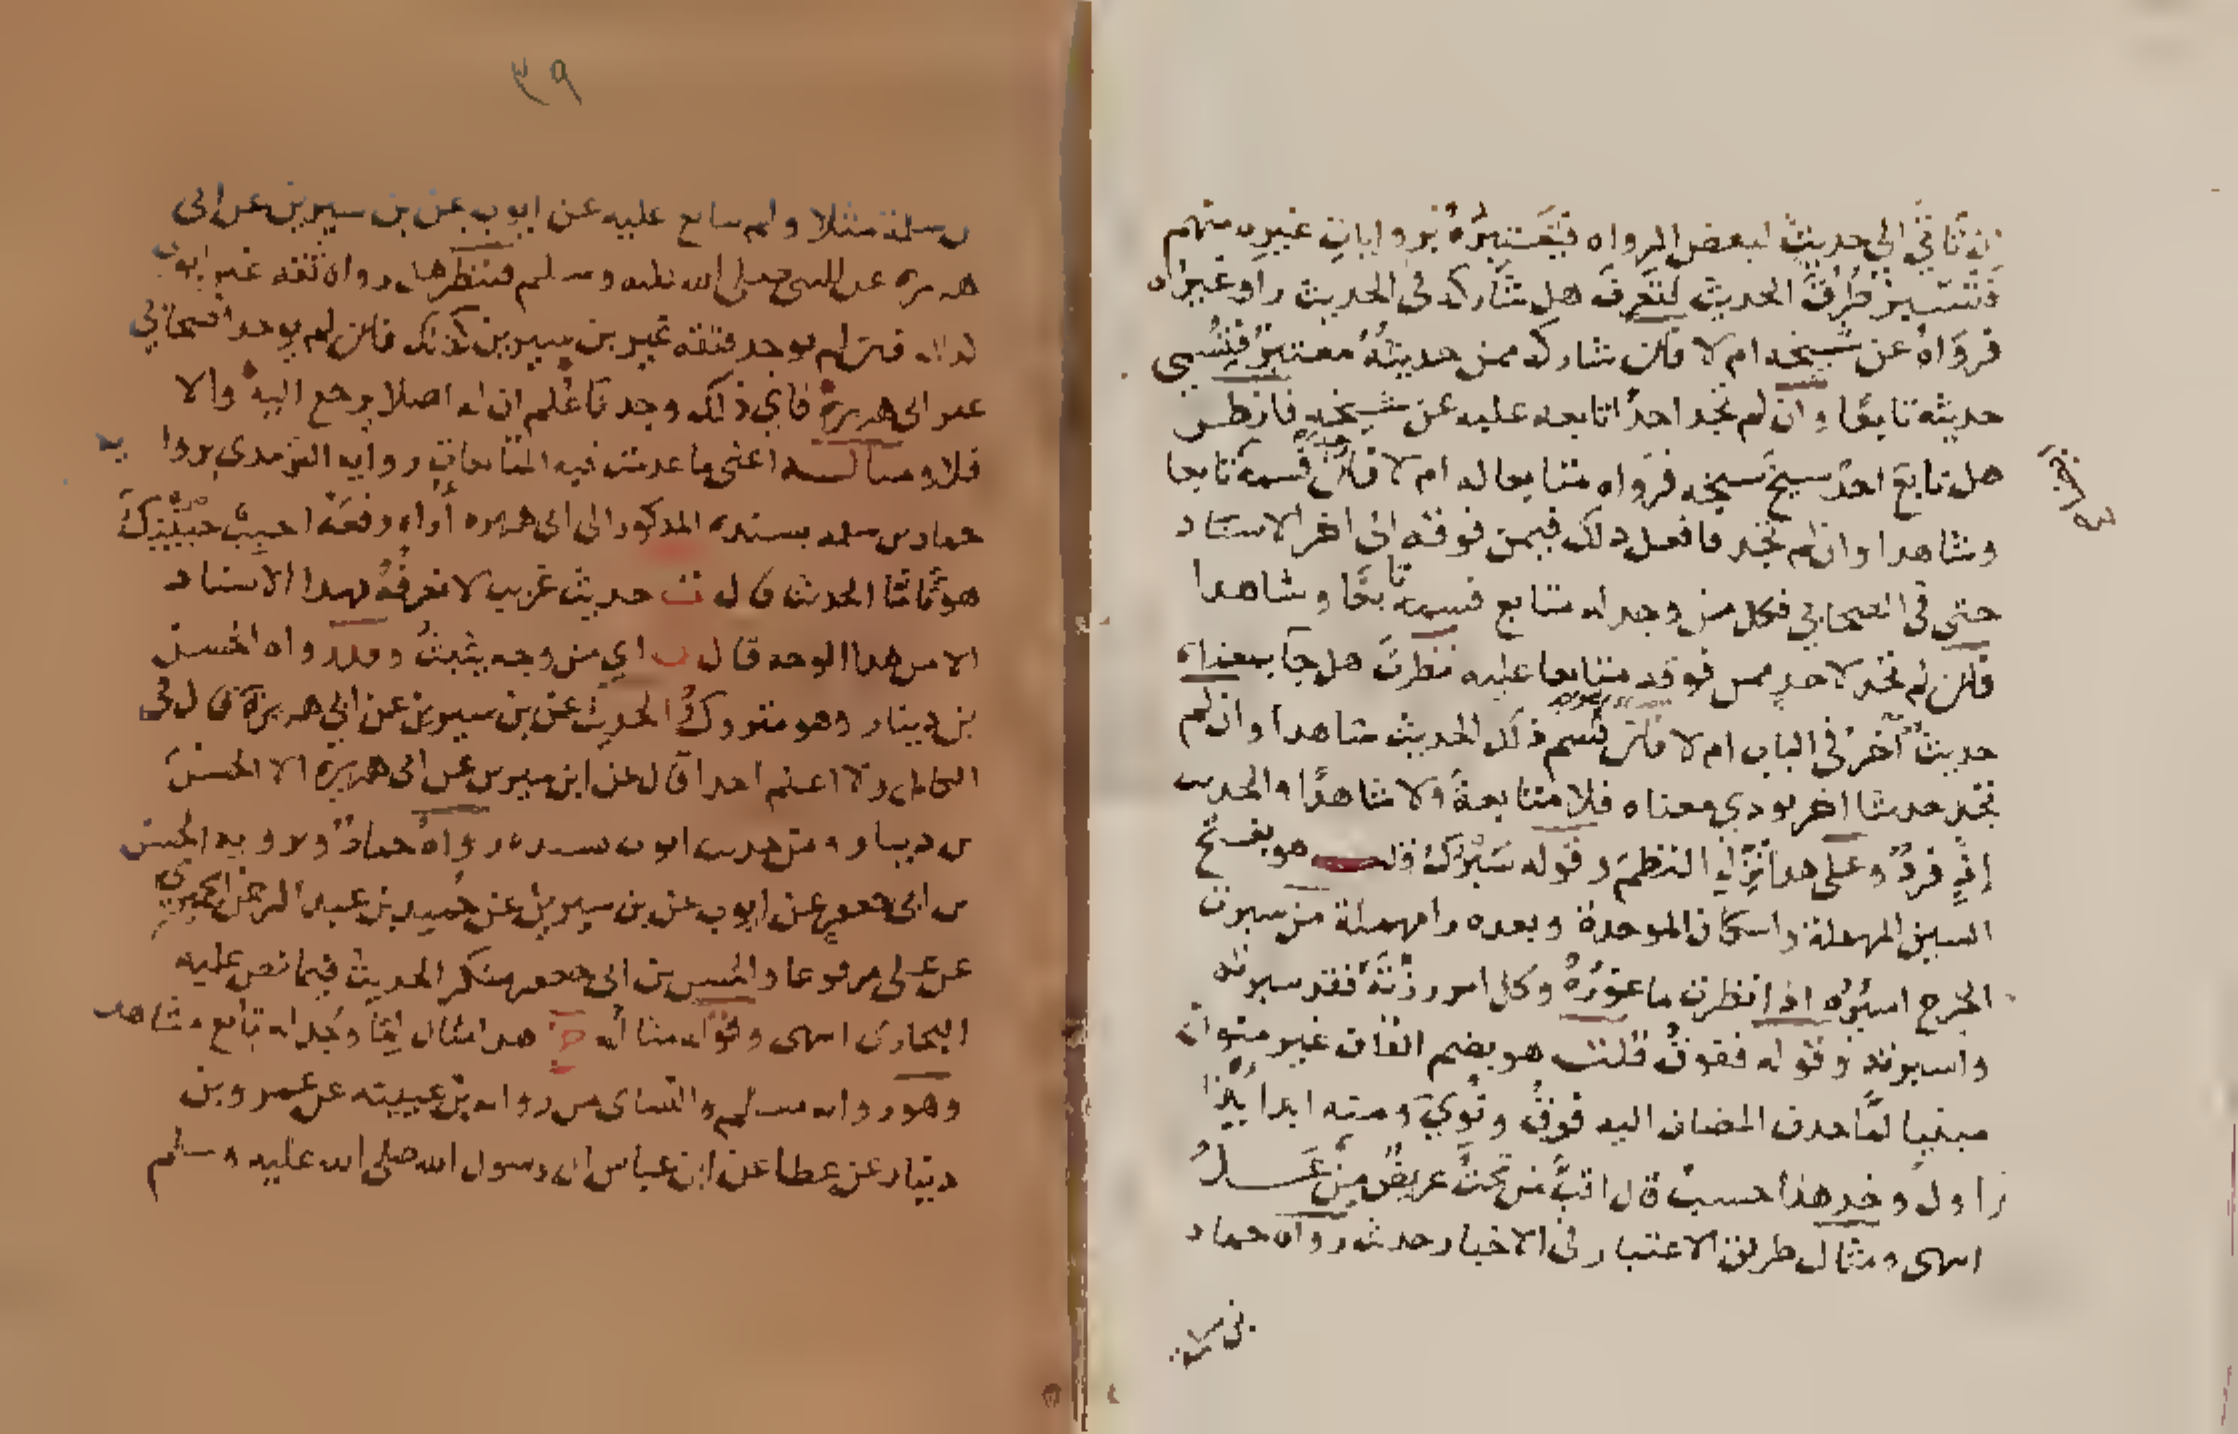 ان تاتي الى حديث لبعض الرواه فتعتبره بروايات غيره منهم
فتسبر طرق الحديث لتعرف هل شاركه في الحديث راو غيراه
فرواه عن شيخه ام لا فان شاركه ممن حديثه معتبر فتسمي
حديثه تابعا وان لم تجد احدا تابعه عليه عن شيخه فانظر
هل تابع احد شيخ شيخه فرواه متابعا له ام لا فان فسمه تابعا
وشاهدا وان لم تجد فافعل ذلك فيمن فوقه الى اخر الاسناد
حتى في الصحابي فكل من وجد له متابع فسمه تابعا وشاهدا
فان لم تجد لاحد ممن فوقه متابعا عليه نظرت هل جا بمعناه
حديث آخر في الباب ام لا فان فسم ذلك الحديث شاهدا وان لم
تجد حديثا اخر يودي معناه فلا متابعة ولا شاهدا والحديث
اذ فرد وعلى هذا في النظم وقوله سبرك قلت هو بفتح
السين المهملة واسكان الموحدة وبعده را مهملة من سبرت
الجرح اسبره اذا نظرت ما غوره وكل امر رزته فقد سبرته
واسبرته وقوله ففوق قلت هو بضم القاف غير متوان
مبنيا لما حذف المضاف اليه فوق ونوي ومنه ابدا بذا
اول وخذ هذا حسب قال اقب من تحت عريض من عل
انتهى ومثال طريق الاعتبار في الاخبار حديث رواه حماد
٣٩
بن سلمة مثلا ولم يتابع عليه عن ايوب عن بن سيرين عن ابى
هريره عن النبي صلى الله عليه وسلم فتنظر هل رواه ثقه غير ايوب
فان لم يوجد فثقه غير بن سيرين كذلك فان لم يوجد فصحابي
غير ابى هريرة فاي ذلك وجد فاعلم ان له اصلا يرجع اليه والا
فلا ومثاله اعنى ما عدمت فيه المتابعات رواية الترمذي بروا يه
حماد بن سلمه بسنده المذكور الى ابى هريره أراه رفعه احبب حبيبك
هونا ما الحديث قال ت حديث غريب لا نعرفه بهذا الاسناد
الا من هذا الوجه قال اي من وجه يثبت وقد رواه الحسن
بن دينار وهو متروك الحديث عن بن سيرين عن ابي هريرة قال في
الكامل ولا اعلم احدا قال عن ابن سيرين عن ابى هريرة الا الحسن
بن دينار ومن حديث ايوب بسنده رواه حماد ويرويه الحسن
بن ابى جعفر عن ايوب عن بن سيرين عن حميد بن عبد الرحمن الحميري
عن على مرفوعا والحسن بن ابى جعفر منكر الحديث فيما نص عليه
البخارى انتهى وقوله مثاله هذا مثال لما وجد له تابع وشاهد
وهو رواية مسلم والنساى من رواية بن عيينه عن عمرو بن
دينار عن عطا عن ابن عباس ان رسول الله صلى الله عليه وسلم